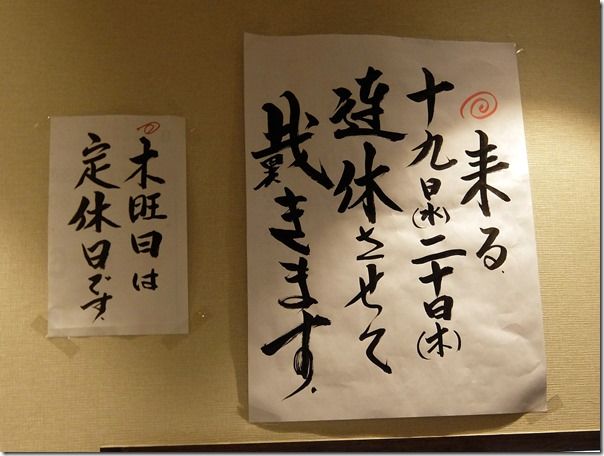 来る、
十九日(水)二十日(木)
連休させて
戴きます。
木旺日は
定休日です。